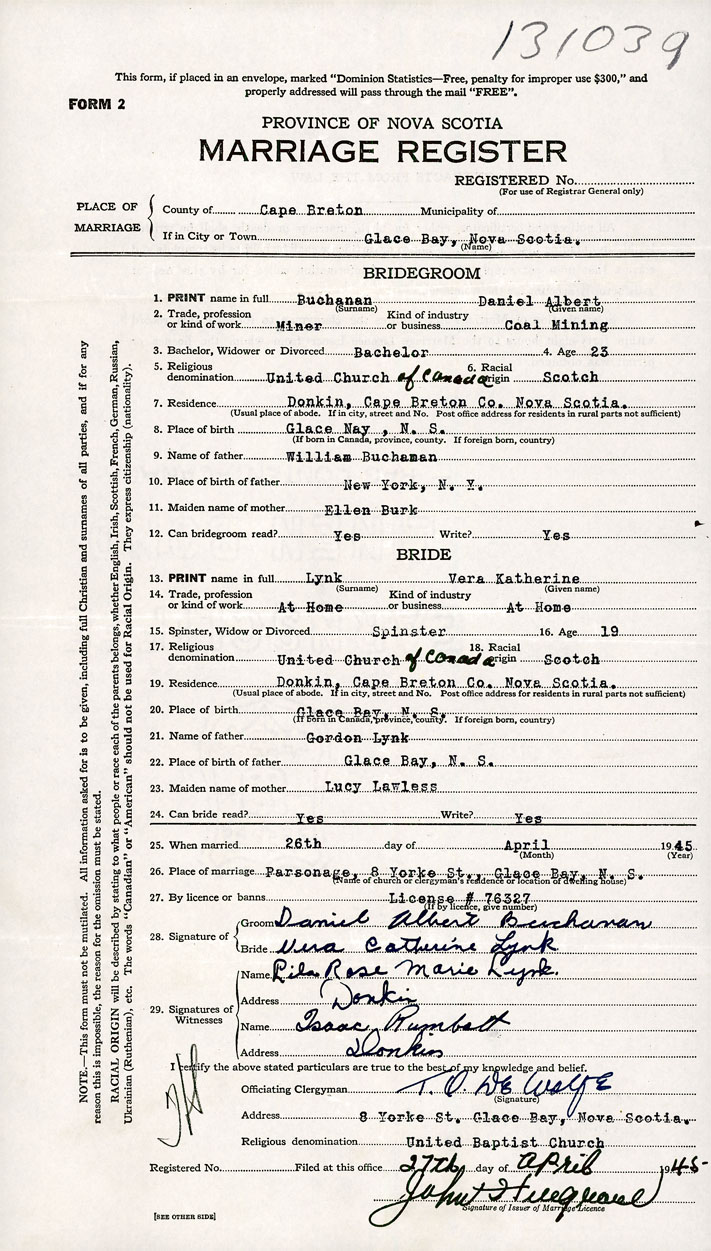 131039
This form, if placed in an envelope, marked "Dominion Statistics—Free, penalty for improper use $300," and
properly addressed will pass through the mail "FREE".
FORM 2
PROVINCE OF NOVA SCOTIA
MARRIAGE REGISTER
REGISTERED No.
(For use of Registrar General only)
PLACE OF MARRIAGE
County of Cape Breton Municipality of
If in City or Town Glace Bay, Nova Scotia.
(Name)
BRIDEGROOM
1. PRINT name in full Buchanan Daniel Albert
(Surname) (Given name)
2. Trade, profession or kind of work Miner Kind of industry or business Coal Mining
3. Bachelor, Widower or Divorced Bachelor 4. Age 23
5. Religious denomination United Church of Canada 6. Racial origin Scotch
7. Residence Donkin, Cape Breton Co. Nova Scotia.
(Usual place of abode. If in city, street and No. Post office address for residents in rural parts not sufficient)
8. Place of birth Glace Nay, N. S.
(If born in Canada, province, county. If foreign born, country)
9. Name of father William Buchanan
10. Place of birth of father New York, N. Y.
11. Maiden name of mother Ellen Burk
12. Can bridegroom read? Yes Write? Yes
BRIDE
13. PRINT name in full Lynk Vera Katherine
(Surname) (Given name)
14. Trade, profession or kind of work At Home Kind of industry or business At Home
15. Spinster, Widow or Divorced Spinster 16. Age 19
17. Religious denomination United Church of Canada 18. Racial origin Scotch
19. Residence Donkin, Cape Breton Co. Nova Scotia.
(Usual place of abode. If in city, street and No. Post office address for residents in rural parts not sufficient)
20. Place of birth Glace Bay, N. S.
(If born in Canada, province, county. If foreign born, country)
21. Name of father Gordon Lynk
22. Place of birth of father Glace Bay, N. S.
23. Maiden name of mother Lucy Lawless
24. Can bride read? Yes Write? Yes
25. When married 26th day of April 1945
(Month) (Year)
26. Place of marriage Parsonage, 8 Yorke St., Glace Bay, N. S.
(Name of church or clergyman's residence or location of dwelling house)
27. By licence or banns License # 76327
(If by licence, give number)
28. Signature of
Groom Daniel Albert Buchanan
Bride Vera Catherine Lynk
29. Signatures of Witnesses
Name Rose Marie Lynk.
Address Donkin
Name Isaac
Address Donkin
I certify the above stated particulars are true to the best of my knowledge and belief.
Officiating Clergyman T. De Wolfe
(Signature)
Address 8 Yorke St. Glace Bay, Nova Scotia.
Religious denomination United Baptist Church
Registered No. Filed at this office 27th day of April 1945
John
Signature of Issuer of Marriage Licence
[SEE OTHER SIDE]
NOTE.—This form must not be mutilated. All information asked for is to be given, including full Christian and surnames of all parties, and if for any
reason this is impossible, the reason for the omission must be stated.
RACIAL ORIGIN will be described by stating to what people or race each of the parents belongs, whether English, Irish, Scottish, French, German, Russian,
Ukrainian (Ruthenian), etc. The words "Canadian" or "American" should not be used for Racial Origin. They express citizenship (nationality).